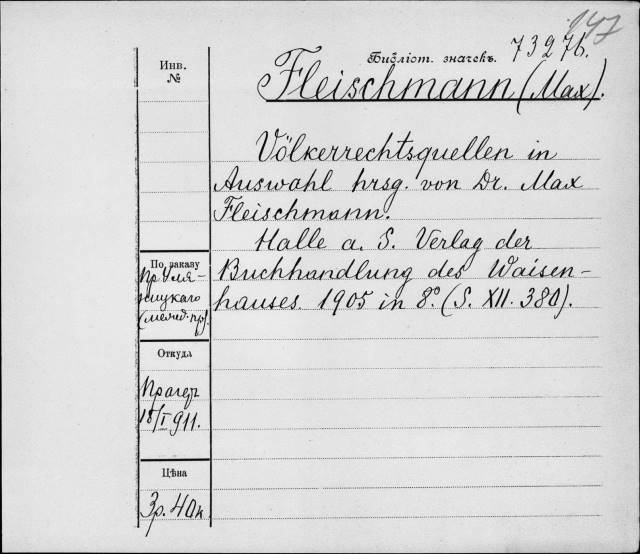 147
Библіот. значекъ. 73276.
Инв.
№
Fleischmann (Max).
Völkerrechtsquellen in
Auswahl hrsg. von Dr. Max
Fleischmann.
Halle a. S. Verlag der
Buchhandlung des Waisen-
hauses. 1905 in 8º. (S. XII. 380).
По заказу
Пр.
(межд. пр).
Откуда
Прагер
18/I 911.
Цѣна
3р. 40к